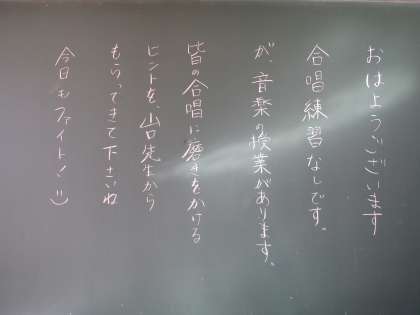 おはようございます
合唱練習なしです。
が、音楽の授業があります。
皆の合唱に磨きをかける
ヒントを、山口先生から
もらってきて下さいね
今日もファイト!!